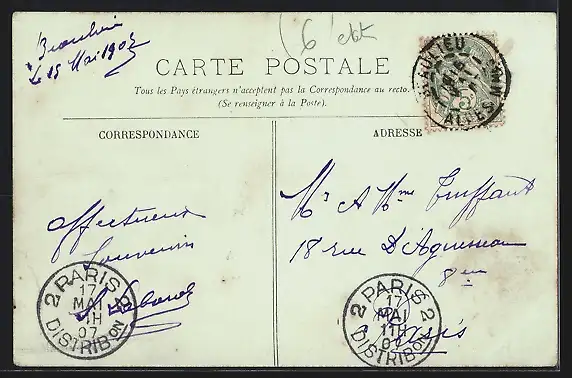 Beaulieu
le 15 Mai 1907
CARTE POSTALE
Tous les Pays étrangers n'acceptent pas la Correspondance au recto.
(Se renseigner à la Poste).
CORRESPONDANCE
ADRESSE
BEAULIEU
ALPES
Affectueux
Souvenir
Mr & Mme Truffaut
18 rue D'Aguesseau
8em
Paris
2 PARIS 2
17
MAI
11H
07
DISTRIBON
2 PARIS 2
17
MAI
11H
07
DISTRIBON